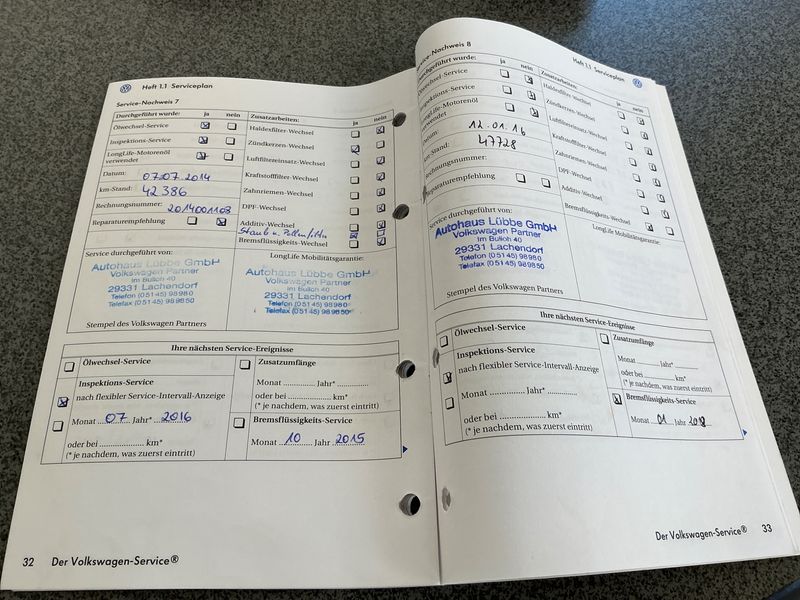 Heft 1.1 Serviceplan
Service-Nachweis 7
Durchgeführt wurde: ja nein
Ölwechsel-Service
Inspektions-Service
LongLife-Motorenöl
verwendet
Datum: 07.07.2014
km-Stand: 42 386
Rechnungsnummer: 2014001103
Reparaturempfehlung
Zusatzarbeiten: ja nein
Haldexfilter-Wechsel
Zündkerzen-Wechsel
Luftfiltereinsatz-Wechsel
Kraftstofffilter-Wechsel
Zahnriemen-Wechsel
DPF-Wechsel
Additiv-Wechsel
Staub u. Pollenfilter
Bremsflüssigkeits-Wechsel
Service durchgeführt von:
Autohaus Lübbe GmbH
Volkswagen Partner
Im Bulloh 40
29331 Lachendorf
Telefon (05145) 98980
Telefax (05145) 989850
Stempel des Volkswagen Partners
LongLife Mobilitätsgarantie:
Autohaus Lübbe GmbH
Volkswagen Partner
Im Bulloh 40
29331 Lachendorf
Telefon (05145) 98980
Telefax (05145) 989850
Ihre nächsten Service-Ereignisse
Ölwechsel-Service
Inspektions-Service
nach flexibler Service-Intervall-Anzeige
Monat 07 Jahr* 2016
oder bei .................... km*
(* je nachdem, was zuerst eintritt)
Zusatzumfänge
Monat ............ Jahr* ............
oder bei .................... km*
(* je nachdem, was zuerst eintritt)
Bremsflüssigkeits-Service
Monat 10 Jahr 2015
32 Der Volkswagen-Service®
Heft 1.1 Serviceplan
Service-Nachweis 8
Durchgeführt wurde: ja nein
Ölwechsel-Service
Inspektions-Service
LongLife-Motorenöl
verwendet
Datum: 12.01.16
km-Stand: 47728
Rechnungsnummer:
Reparaturempfehlung
Zusatzarbeiten: ja nein
Haldexfilter-Wechsel
Zündkerzen-Wechsel
Luftfiltereinsatz-Wechsel
Kraftstofffilter-Wechsel
Zahnriemen-Wechsel
DPF-Wechsel
Additiv-Wechsel
Bremsflüssigkeits-Wechsel
Service durchgeführt von:
Autohaus Lübbe GmbH
Volkswagen Partner
Im Bulloh 40
29331 Lachendorf
Telefon (05145) 98980
Telefax (05145) 989850
Stempel des Volkswagen Partners
LongLife Mobilitätsgarantie:
Ihre nächsten Service-Ereignisse
Ölwechsel-Service
Inspektions-Service
nach flexibler Service-Intervall-Anzeige
Monat ............ Jahr* ............
oder bei .................... km*
(* je nachdem, was zuerst eintritt)
Zusatzumfänge
Monat ............ Jahr* ............
oder bei .................... km*
(* je nachdem, was zuerst eintritt)
Bremsflüssigkeits-Service
Monat 01 Jahr 2018
Der Volkswagen-Service® 33